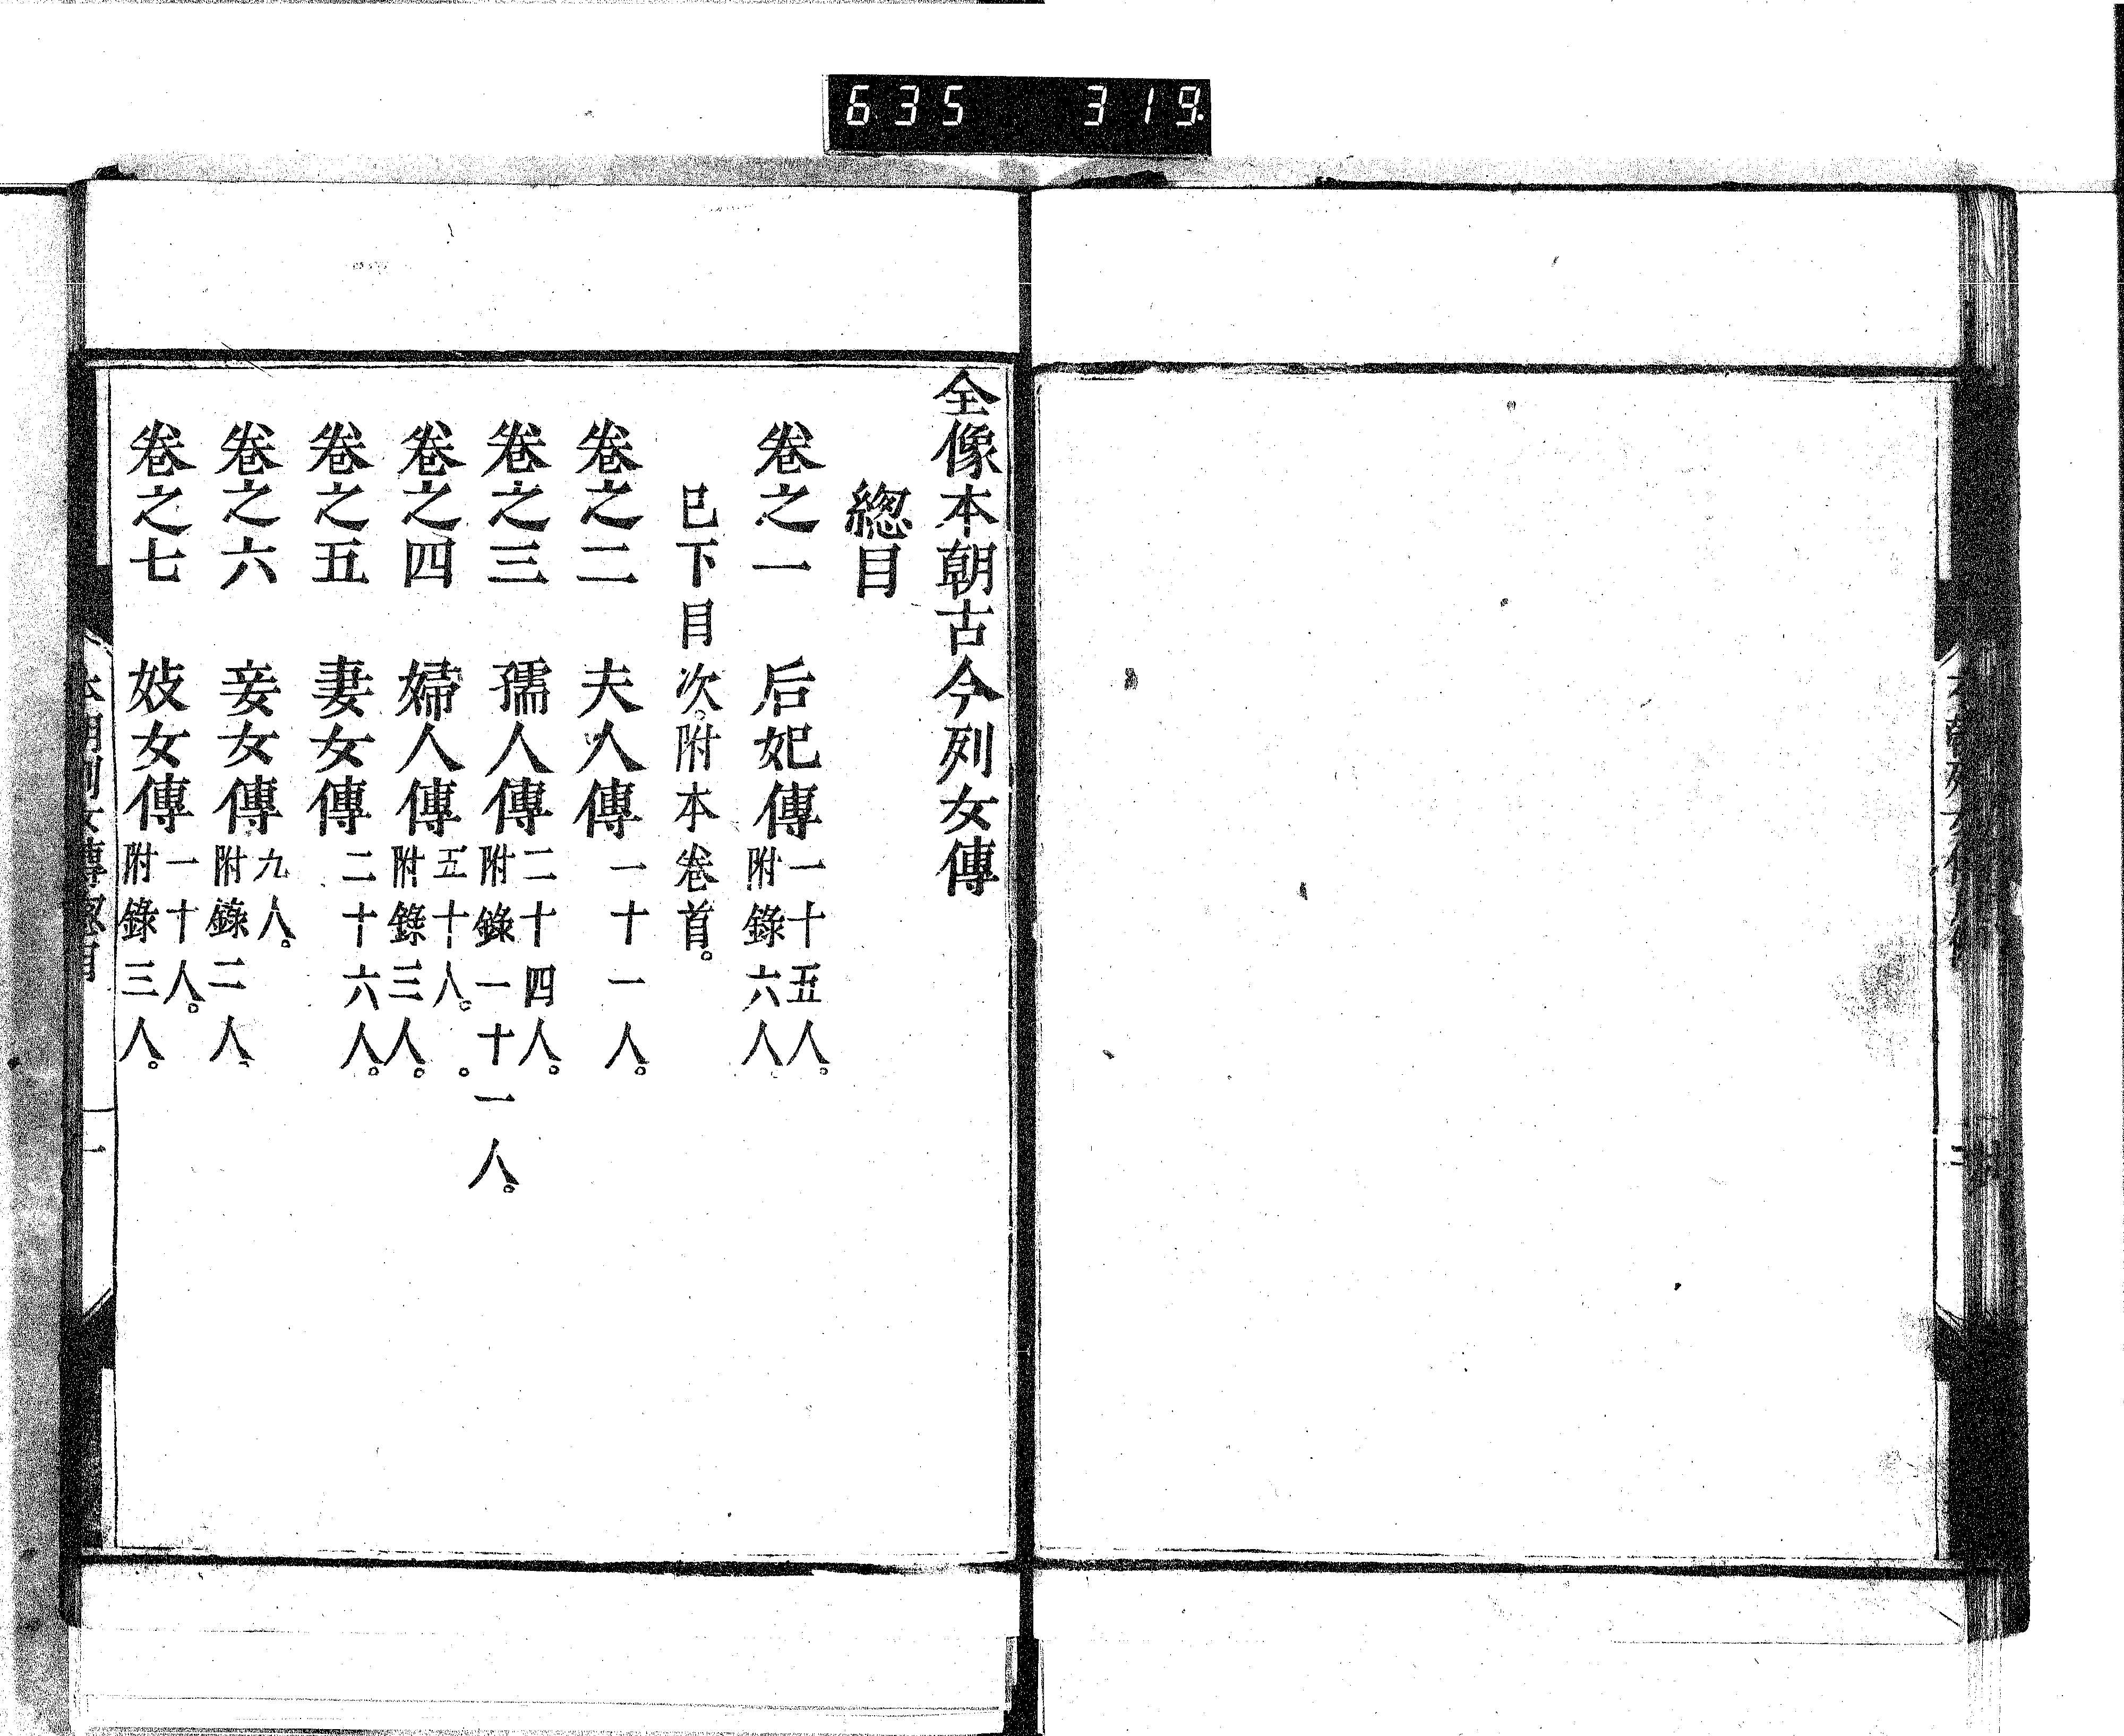 635 319
全像本朝古今列女傳
總目
卷之一 后妃傳 一十五人。附錄六人
已下目次。附本卷首。
卷之二 夫人傳 一十一人。
卷之三 孺人傳 二十四人。附錄一十一人。
卷之四 婦人傳 五十人。附錄三人。
卷之五 妻女傳 二十六人。
卷之六 妾女傳 九人。附錄二人
卷之七 妓女傳 一十人。附錄三人。
本朝列女傳總目 一